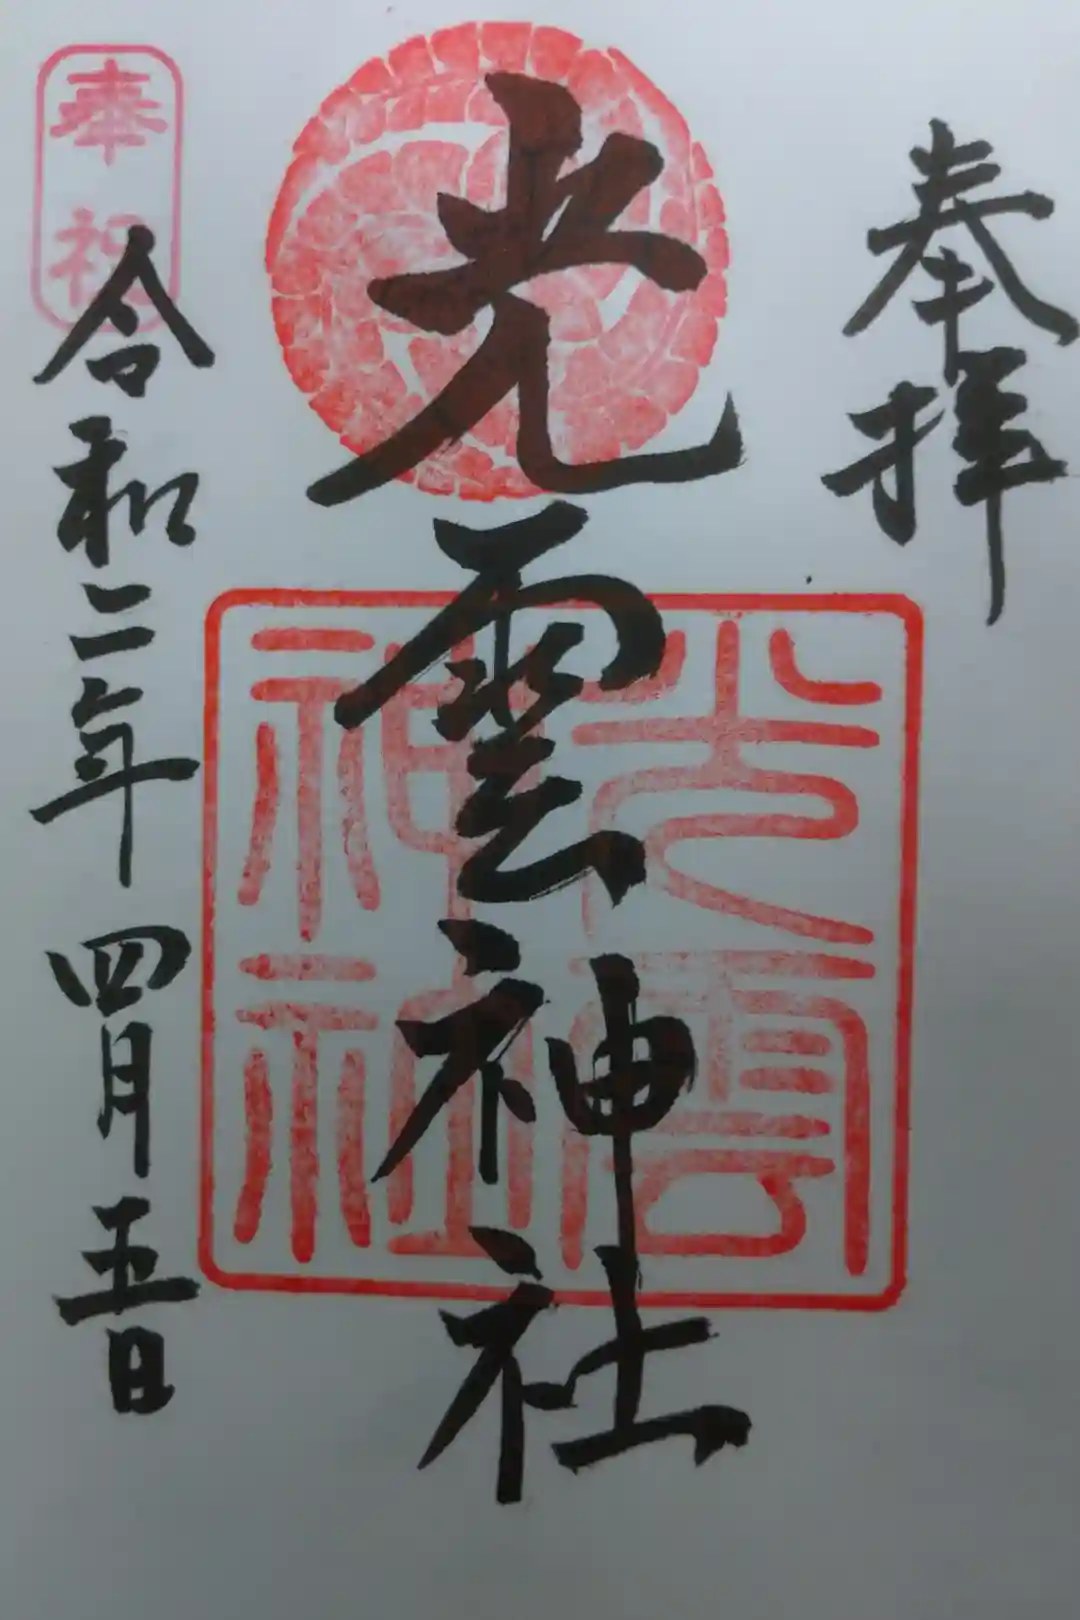 奉拝
光雲神社
光雲神社
奉祝
令和二年 四月五日